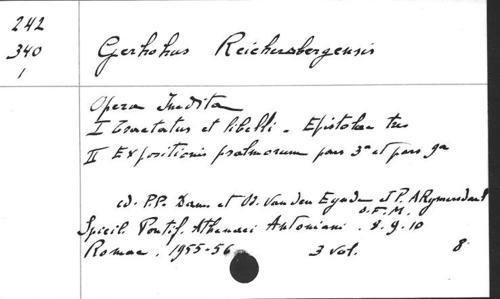 242
340
1
Gerhohus Reichersbergensis
Opera Inedita
I Tractatus et libelli - Epistolae tres
II Expositionis psalmorum pars 3a et pars 9a
ed. P.P. Dam. et O. Van den Eynde et P. A Rijmersdael
O.F.M.
Spicil. Pontif. Athenaei Antoniani . 8. 9. 10
Romae . 1955-56 3 vol. 8